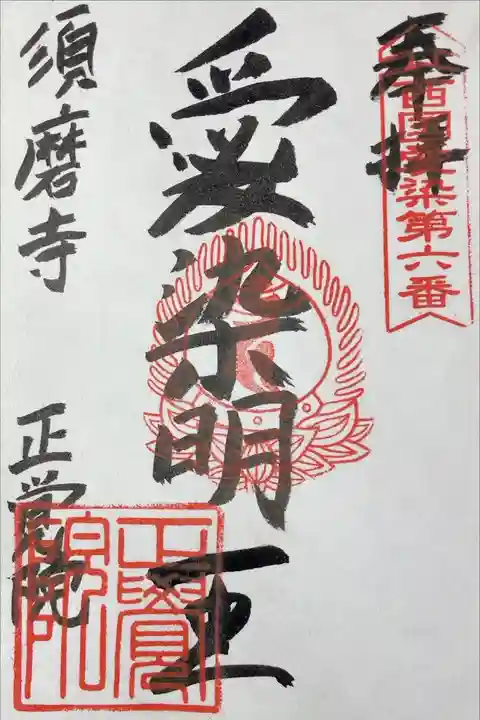 奉拝
西国愛染第六番
愛染明王
須磨寺
正覚院
正覺院